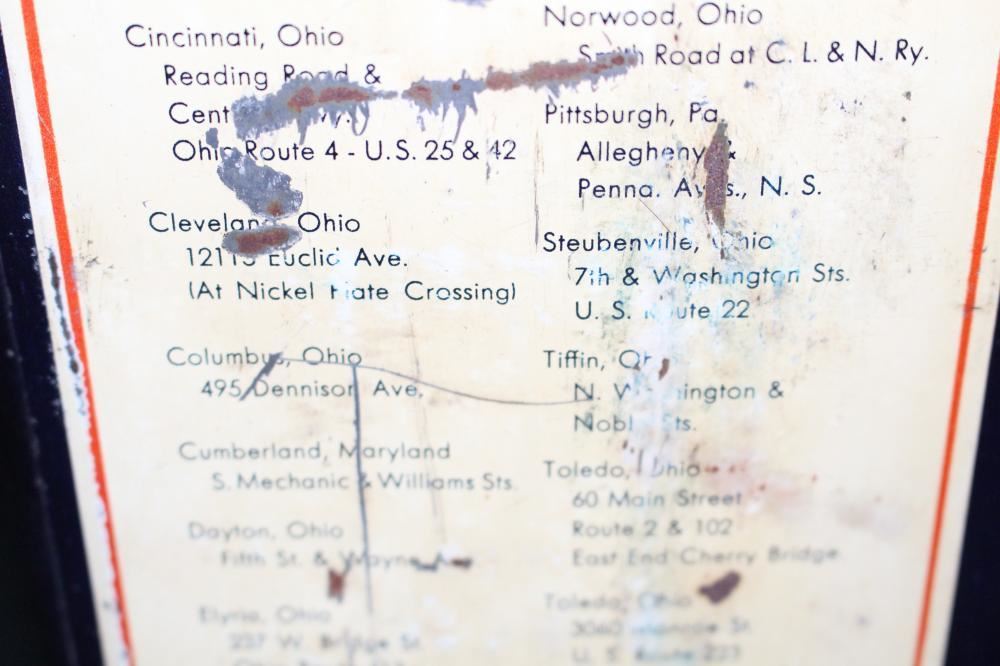 Cincinnati, Ohio
Reading Road &
Ohio Route 4 - U.S. 25 & 42
Cleveland, Ohio
Euclid Ave.
(At Nickel Plate Crossing)
Columbus, Ohio
495 Dennison Ave.
Cumberland, Maryland
S. Mechanic & Williams Sts.
Dayton, Ohio
Fifth St. & Wayne
Elyria, Ohio
237 W. Bridge St.
Norwood, Ohio
Smith Road at C. L. & N. Ry.
Pittsburgh, Pa.
Allegheny &
Penna. Aves., N. S.
Steubenville, Ohio
7th & Washington Sts.
U. S. Route 22
Tiffin, Ohio
N. Washington &
Noble Sts.
Toledo, Ohio
60 Main Street
Route 2 & 102
East End Cherry Bridge
Toledo, Ohio
3060 Monroe St.
U. S. Route 223